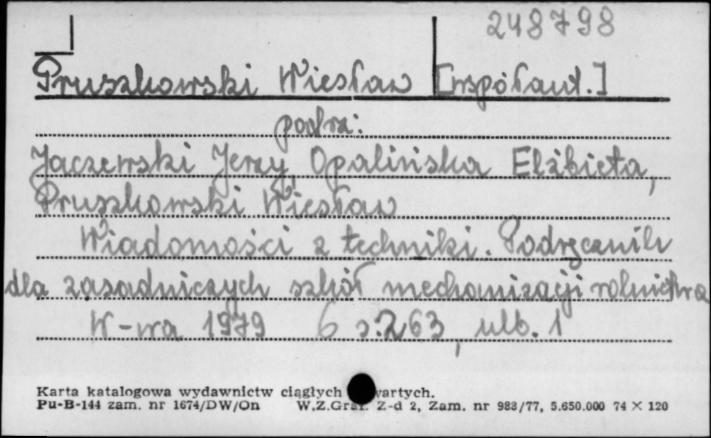 248798
Pruszkowski Wiesław [współaut.]
patrz:
Jaczewski Jerzy, Opalińska Elżbieta,
Pruszkowski Wiesław
Wiadomości z techniki. Podręcznik
dla zasadniczych szkół mechanizacji rolnictwa
W-wa 1979 6 s. 263, nlb. 1
Karta katalogowa wydawnictw ciągłych wartych.
Pu-B-144 zam. nr 1674/DW/On W.Z.Graf. Z-d 2, Zam. nr 983/77, 5.650.000 74 × 120